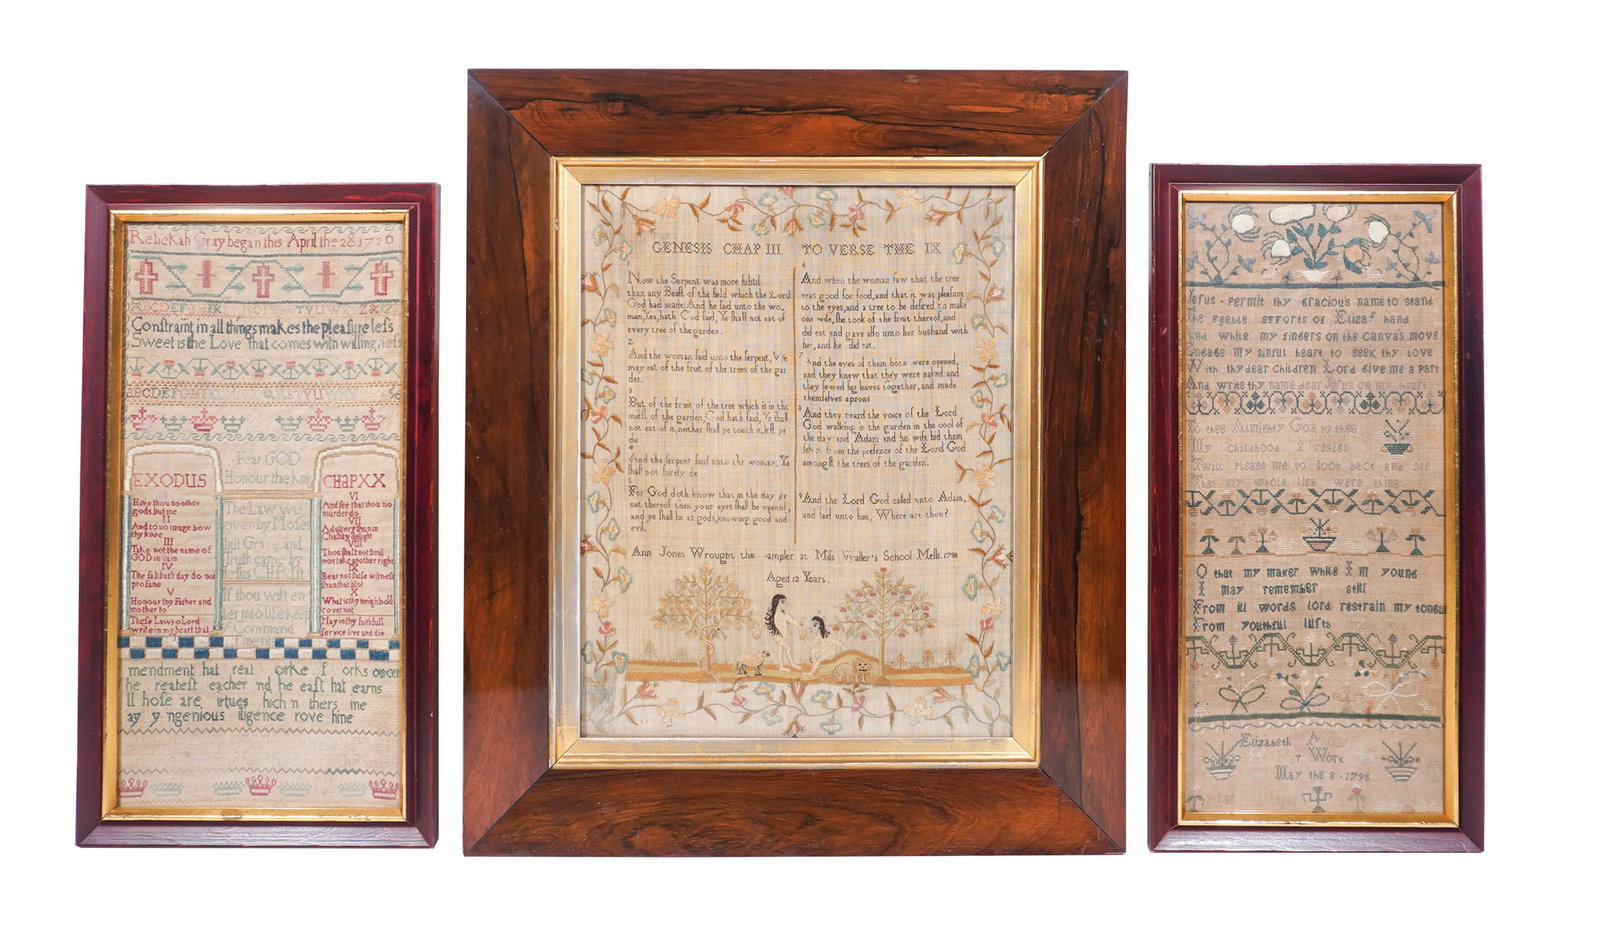 Rebekah Gray began this April the 28 1726
Constraint in all things makes the pleasure less
Sweet is the Love that comes with willing
Fear GOD
Honour the King
EXODUS
Have thou no other
gods but me
II
And to no image bow
thy knee
III
Take not the name of
GOD in vain
IV
The sabbath day do not
profane
V
Honour thy Father and
mother to
These Laws o Lord
write in my heart that
The Law was
given by Moses
but Grace and
truth came by
Jesus CHRIST
If thou wilt en
ter into life keep
Command
CHAPXX
VI
And see that thou no
murder do
VII
Adultery shun in
Chastity delight
VIII
Thou shalt not steal
nor take another right
IX
Bear not false witness
shun that blot
X
What is thy neighbors
covet not
May in thy faithfull
service live and die
mendment hat reat orke f orks
he reatest eacher nd he east hat earns
ll hose are irtues hich n thers me
ay y ngenious iligence rove hine
GENESIS CHAP III TO VERSE THE IX
Now the Serpent was more subtil
than any Beast of the field which the Lord
God had made: And he said unto the wo
man, Yea, hath God said, Ye shall not eat of
every tree of the garden.
2
And the woman said unto the serpent, We
may eat of the fruit of the trees of the gar
den:
3
But of the fruit of the tree which is in the
midst of the garden, God hath said, Ye shall
not eat of it, neither shall ye touch it, lest ye
die
4
And the serpent said unto the woman, Ye
shall not surely die
5
For God doth know that in the day ye
eat thereof then your eyes shall be opened,
and ye shall be as gods, knowing good and
evil.
6
And when the woman saw that the tree
was good for food, and that it was pleasant
to the eyes, and a tree to be desired to make
one wise, she took of the fruit thereof, and
did eat and gave also unto her husband with
her, and he did eat.
7 And the eyes of them both were opened,
and they knew that they were naked: and
they sewed fig leaves together, and made
themselves aprons
8
And they heard the voice of the Lord
God walking in the garden in the cool of
the day: and Adam and his wife hid them
selves from the presence of the Lord God
amongst the trees of the garden.
9 And the Lord God called unto Adam,
and said unto him, Where art thou?
Ann Jones Wrought this sampler at Miss Wyaller's School Mells. 1798
Aged 12 Years.
Jesus permit thy gracious name to stand
the feeble efforts of Elizas hand
and while my fingers on the Canvas move
Engage my sinful heart to seek thy Love
With thy dear Children Lord Give me a part
And write thy name dear Jesus on my heart
To thee Almighty God to thee
My Childhood I resign
Twill Please me to look back and see
That my whole life were thine
O that my maker while I m young
I may remember still
From ill words lord restrain my tongu
From youthful lusts
Elizabeth
r Work
May the 8 1795